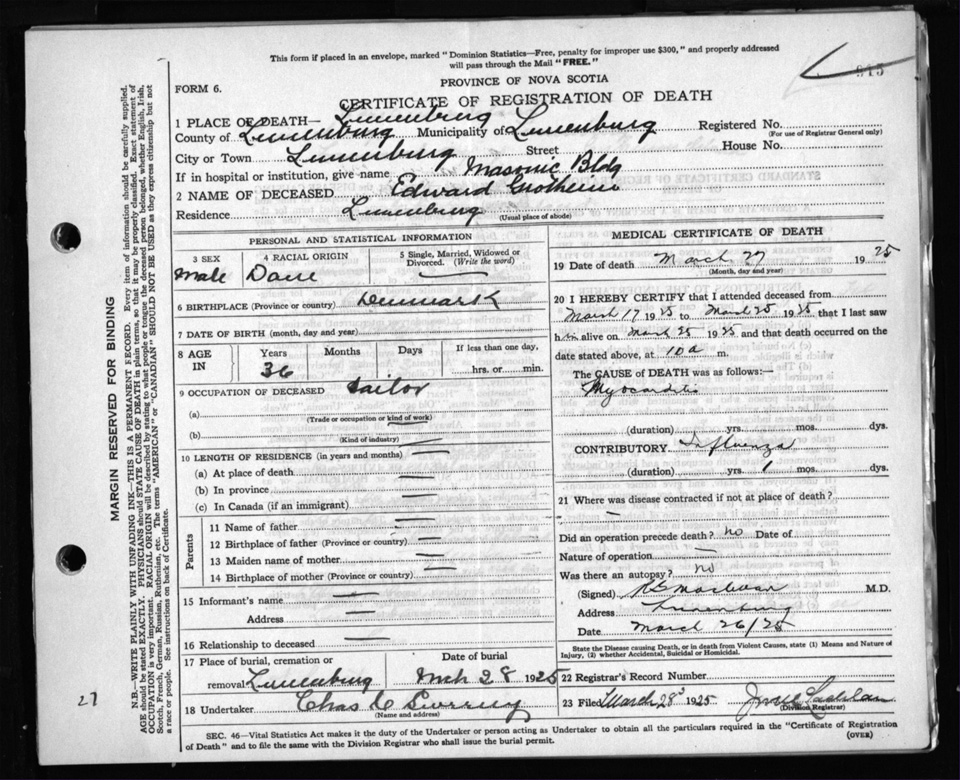 This form if placed in an envelope, marked "Dominion Statistics—Free, penalty for improper use $300," and properly addressed
will pass through the Mail "FREE."
PROVINCE OF NOVA SCOTIA
FORM 6.
CERTIFICATE OF REGISTRATION OF DEATH
1 PLACE OF DEATH— Lunenburg
County of Lunenburg Municipality of Lunenburg Registered No.
(For use of Registrar General only)
City or Town Lunenburg Street House No.
If in hospital or institution, give name Masonic Bldg
2 NAME OF DECEASED Edward
Residence Lunenburg
(Usual place of abode)
PERSONAL AND STATISTICAL INFORMATION
3 SEX 4 RACIAL ORIGIN 5 Single, Married, Widowed or
Divorced. (Write the word)
Male Dane —
6 BIRTHPLACE (Province or country) Denmark
7 DATE OF BIRTH (month, day and year)
8 AGE IN Years Months Days If less than one day,
36 hrs. or min.
9 OCCUPATION OF DECEASED Sailor
(a)
(Trade or occupation or kind of work)
(b)
(Kind of industry)
10 LENGTH OF RESIDENCE (in years and months) —
(a) At place of death —
(b) In province —
(c) In Canada (if an immigrant) —
Parents
11 Name of father —
12 Birthplace of father (Province or country) —
13 Maiden name of mother —
14 Birthplace of mother (Province or country) —
15 Informant's name —
Address —
16 Relationship to deceased —
17 Place of burial, cremation or Date of burial
removal Lunenburg Mch 28 1925
18 Undertaker Chas
(Name and address)
MEDICAL CERTIFICATE OF DEATH
19 Date of death March 27 19 25
(Month, day and year)
20 I HEREBY CERTIFY that I attended deceased from
March 17 1925 to March 25 1925, that I last saw
him alive on March 25 1925 and that death occurred on the
date stated above, at 10 a m.
The CAUSE of DEATH was as follows:—
Myocarditis
(duration) yrs. mos. dys.
CONTRIBUTORY Influenza
(duration) yrs. 1 mos. dys.
21 Where was disease contracted if not at place of death?
—
Did an operation precede death? no Date of
Nature of operation —
Was there an autopsy? no
(Signed) M.D.
Address Lunenburg
Date March 26/25
State the Disease causing Death, or in death from Violent Causes, state (1) Means and Nature of
Injury, (2) whether Accidental, Suicidal or Homicidal.
22 Registrar's Record Number
23 Filed March 28 1925
(Division Registrar)
SEC. 46—Vital Statistics Act makes it the duty of the Undertaker or person acting as Undertaker to obtain all the particulars required in the "Certificate of Registration
of Death" and to file the same with the Division Registrar who shall issue the burial permit.
(OVER)
MARGIN RESERVED FOR BINDING
N.B.—WRITE PLAINLY WITH UNFADING INK—THIS IS A PERMANENT RECORD. Every item of information should be carefully supplied.
AGE should be stated EXACTLY. PHYSICIANS should STATE CAUSE OF DEATH in plain terms, so that it may be properly classified. Exact statement of
OCCUPATION is very important. RACIAL ORIGIN will be described by stating to what people or tongue the deceased person belonged, whether English, Irish,
Scotch, French, German, Russian, Ruthenian, etc. The terms "AMERICAN" or "CANADIAN" SHOULD NOT BE USED as they express citizenship but not
a race or people. See instructions on back of Certificate.
27